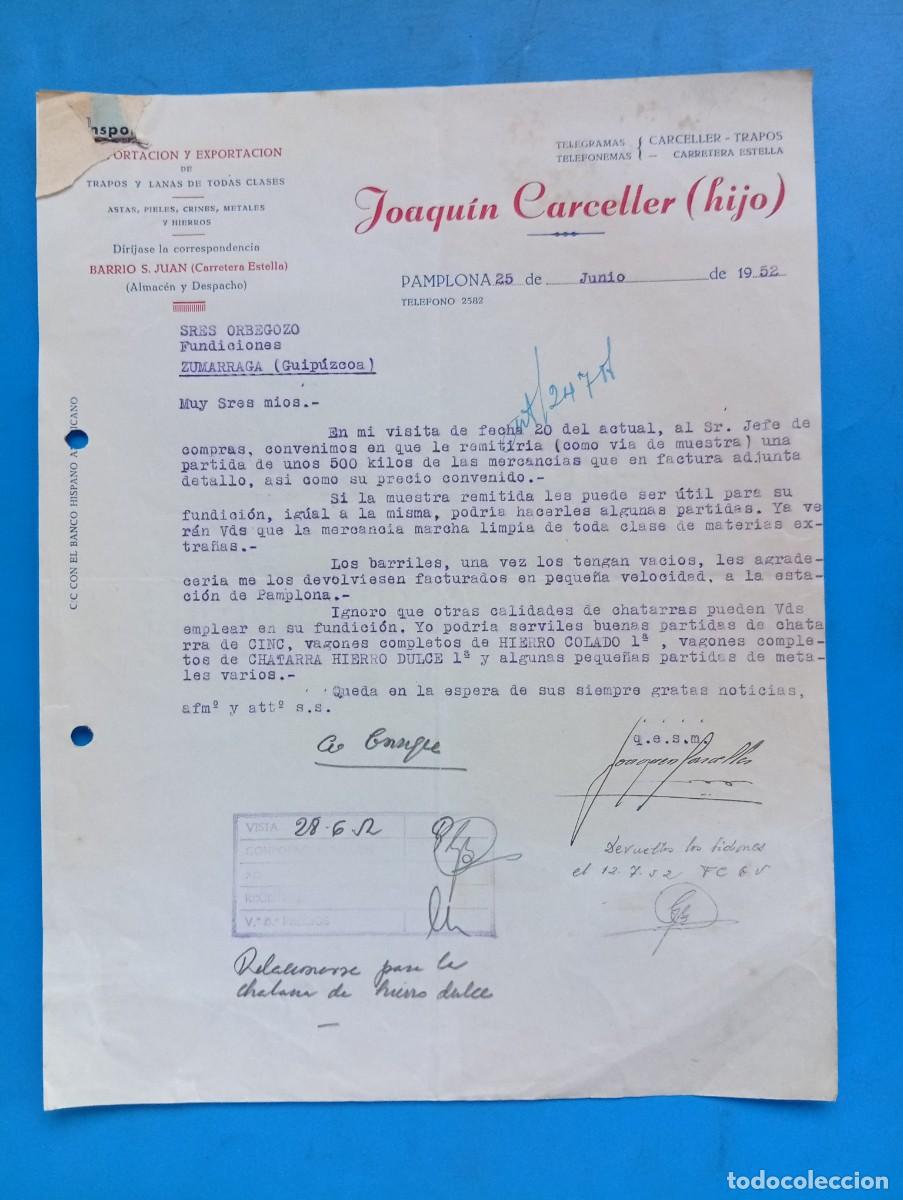 nspo
PORTACION Y EXPORTACION
DE
TRAPOS Y LANAS DE TODAS CLASES
ASTAS, PIELES, CRINES, METALES
Y HIERROS
Diríjase la correspondencia
BARRIO S. JUAN (Carretera Estella)
(Almacén y Despacho)
TELEGRAMAS { CARCELLER - TRAPOS
TELEFONEMAS — CARRETERA ESTELLA
Joaquín Carceller (hijo)
PAMPLONA 25 de Junio de 1952
TELEFONO 2582
SRES ORBEGOZO
Fundiciones
ZUMARRAGA (Guipúzcoa)
Muy Sres mios.-
En mi visita de fecha 20 del actual, al Sr. Jefe de
compras, convenimos en que le remitiria (como via de muestra) una
partida de unos 500 kilos de las mercancias que en factura adjunta
detallo, asi como su precio convenido.-
Si la muestra remitida les puede ser útil para su
fundición, igúal a la misma, podria hacerles algunas partidas. Ya ve
rán Vds que la mercancia marcha limpia de toda clase de materias ex-
trañas.-
Los barriles, una vez los tengan vacios, les agrade-
ceria me los devolviesen facturados en pequeña velocidad, a la esta-
ción de Pamplona.-
Ignoro que otras calidades de chatarras pueden Vds
emplear en su fundición. Yo podria serviles buenas partidas de chata
rra de CINC, vagones completos de HIERRO COLADO 1ª , vagones comple-
tos de CHATARRA HIERRO DULCE 1ª y algunas pequeñas partidas de meta-
les varios.-
Queda en la espera de sus siempre gratas noticias,
afmº y attº s.s.
q.e.s.m.
Joaquin Carceller
C/C CON EL BANCO HISPANO A ICANO
VISTA 28-6-52
V.º B.º
Devueltos los bidones
el 12.7.52 FC
Relacionarse para la
chatarra de hierro dulce